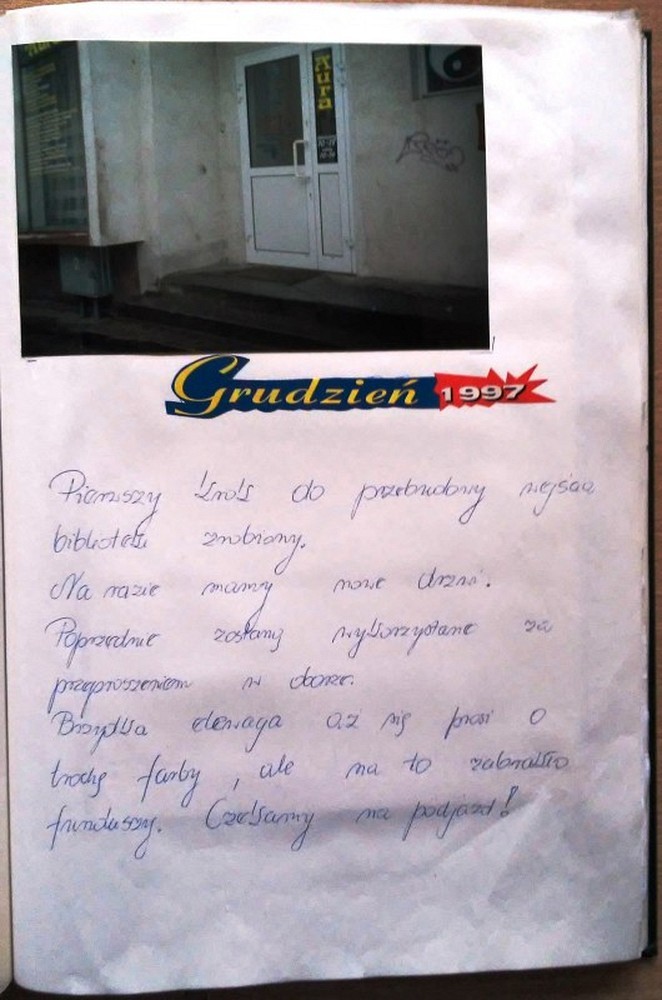 Aura
Grudzień 1997
Pierwszy krok do przebudowy wejścia
biblioteki zrobiony.
Na razie mamy nowe drzwi.
Poprzednie zostaną wykorzystane za
przeproszeniem w oborze.
Brzydka elewacja aż się prosi o
trochę farby, ale na to zabrakło
funduszy. Czekamy na podjazd!